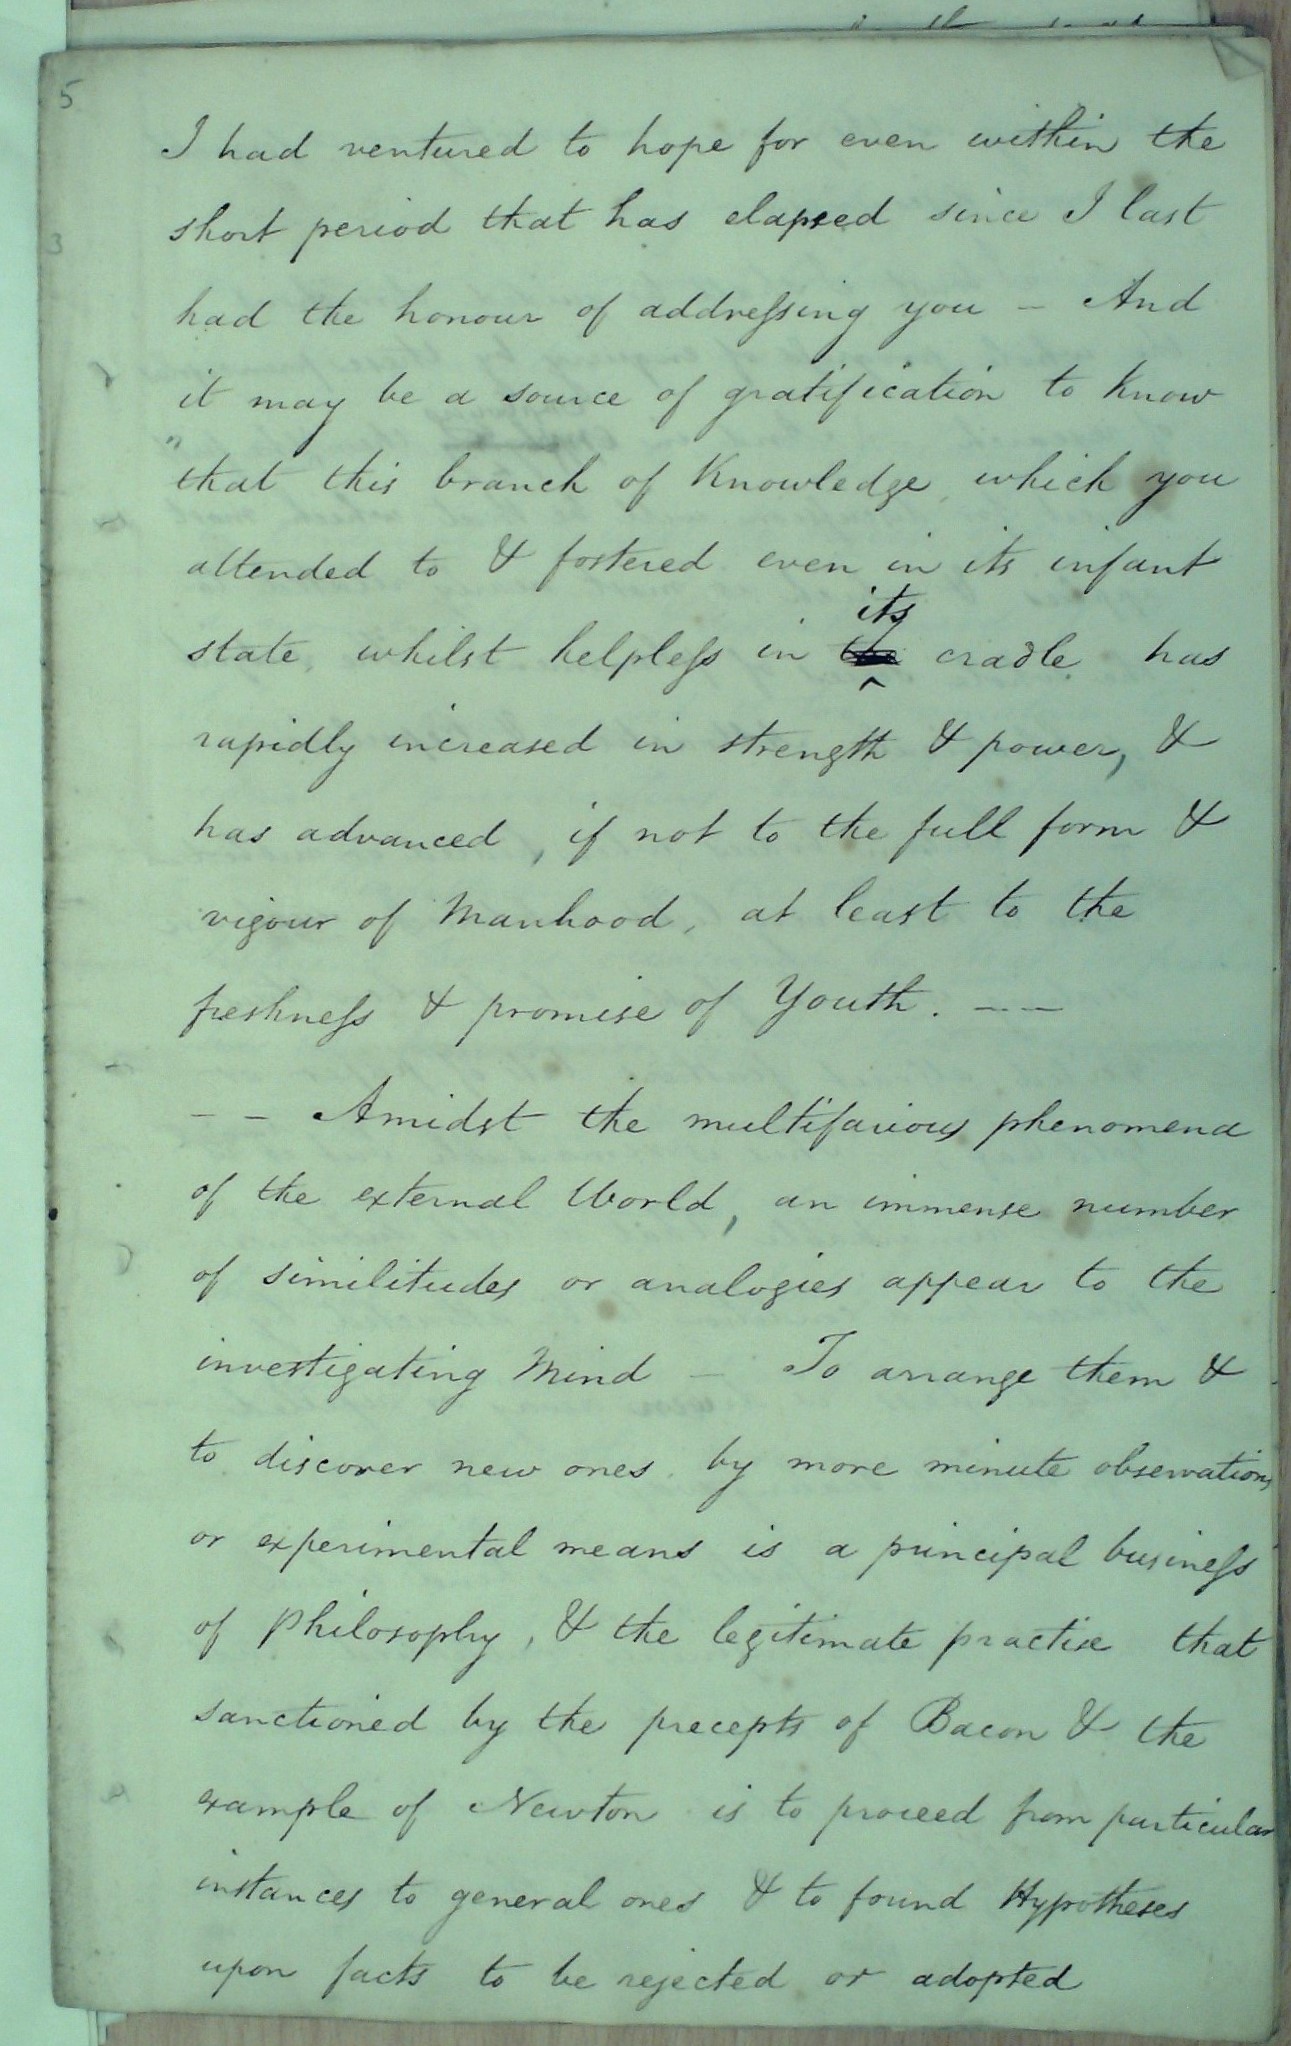 5
I had ventured to hope for even within the
short period that has elapsed since I last
3
had the honour of addreſsing you – And
it may be a source of gratification to know
" that this branch of Knowledge, which you
attended to & fostered even in its infant
its
state, whilst helpleſs in the cradle has
^
rapidly increased in strength & power, &
has advanced, if not to the full form &
vigour of Manhood, at least to the
freshneſs & promise of Youth. – – –
– – Amidst the multifarious phenomena
of the external World, an immense number
of similitudes or analogies appear to the
investigating Mind – To arrange them &
to discover new ones by more minute observations
or experimental means is a principal busineſs
of Philosophy, & the legitimate practise that
sanctioned by the precepts of Bacon & the
example of Newton is to proceed from particular
instances to general ones & to found Hypotheses
upon facts to be rejected or adopted